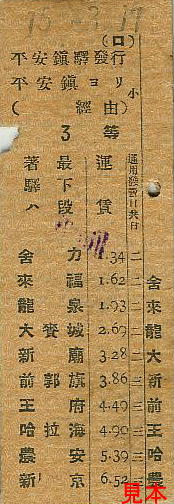 15.-3.19
(口)
平安鎭驛發行
平安鎭ヨリ
(經由)
小
3等
著驛ハ
最下段
運賃
通用發賣日共
二日
舍力 1.34 二
來福 1.62 二 舍
龍泉 1.93 二 來
大賚城 2.69 二 龍
新廟 3.28 二 大
前郭旗 3.86 三 新
王府 4.49 三 前
哈拉海 4.90 三 王
農安 5.39 三 哈
新京 6.52 三 農
見本